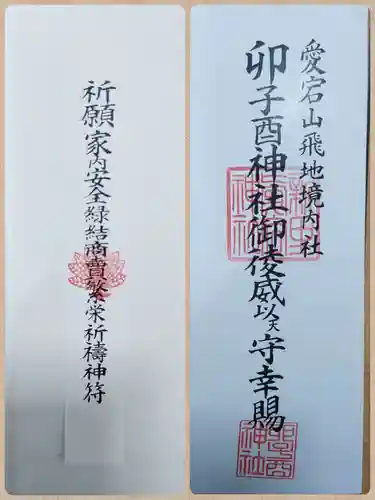 愛宕山飛地境内社
卯子酉神社御稜威以天守幸賜
祈願家内安全縁結商賣繁栄祈禱神符